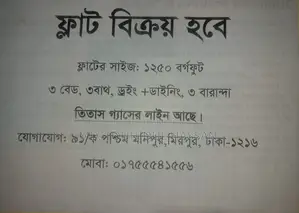 ফ্লাট বিক্রয় হবে
ফ্লাটের সাইজ: ১২৫০ বর্গফুট
৩ বেড, ৩বাথ, ড্রইং +ডাইনিং, ৩ বারান্দা
তিতাস গ্যাসের লাইন আছে।
যোগাযোগ: ৯১/ক পশ্চিম মনিপুর,মিরপুর, ঢাকা-১২১৬
মোবা: ০১৭৫৫৪১৫৫৬